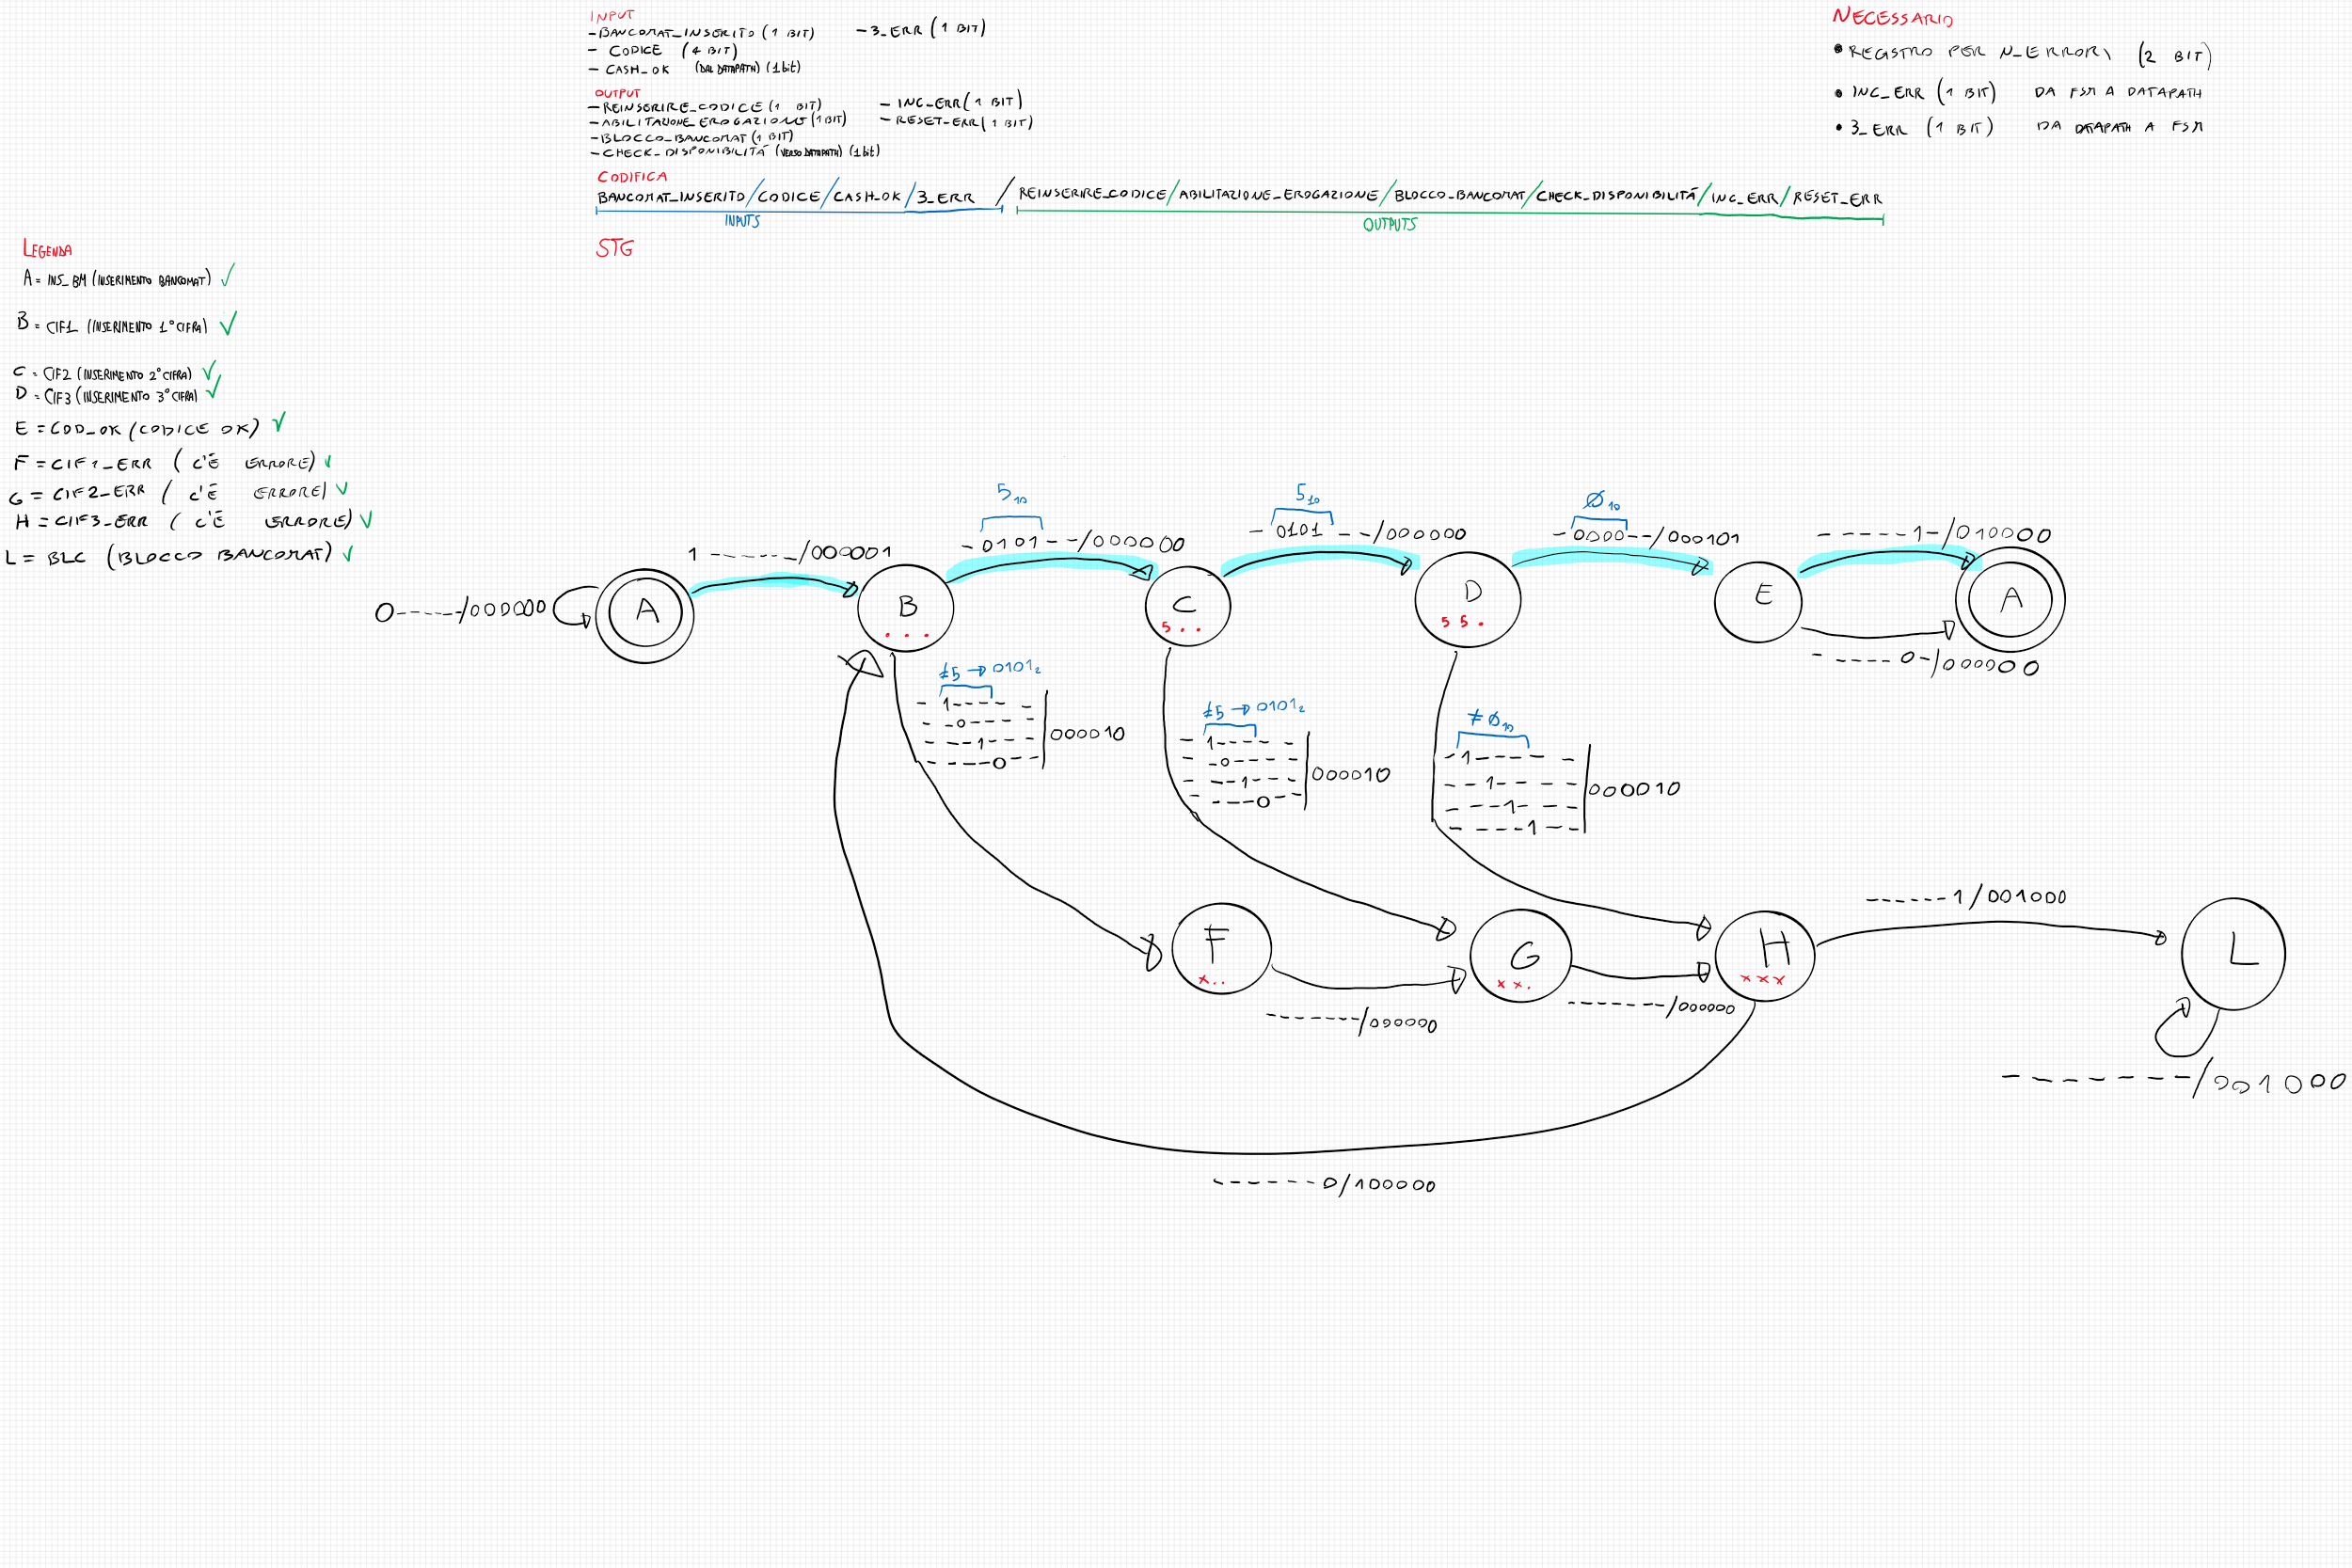 INPUT
-BANCOMAT_INSERITO (1 BIT) -3_ERR (1 BIT)
- CODICE (4 BIT)
- CASH_OK (DAL DATAPATH) (1bit)
OUTPUT
-REINSERIRE_CODICE (1 BIT) - INC_ERR (1 BIT)
-ABILITAZIONE_EROGAZIONE (1 BIT) - RESET_ERR (1 BIT)
-BLOCCO_BANCOMAT (1 BIT)
-CHECK_DISPONIBILITÁ (VERSO DATAPATH) (1bit)
NECESSARIO
• REGISTRO PER N_ERRORI (2 BIT)
• INC_ERR (1 BIT) DA FSM A DATAPATH
• 3_ERR (1 BIT) DA DATAPATH A FSM
CODIFICA
BANCOMAT_INSERITO/CODICE/CASH_OK/3_ERR / REINSERIRE_CODICE/ABILITAZIONE_EROGAZIONE/BLOCCO_BANCOMAT/CHECK_DISPONIBILITÁ/INC_ERR/RESET_ERR
INPUTS OUTPUTS
STG
LEGENDA
A = INS_BM (INSERIMENTO BANCOMAT) ✓
B = CIF1 (INSERIMENTO 1° CIFRA) ✓
C = CIF2 (INSERIMENTO 2° CIFRA) ✓
D = CIF3 (INSERIMENTO 3° CIFRA) ✓
E = COD_OK (CODICE OK) ✓
F = CIF1_ERR ( C'È ERRORE) ✓
G = CIF2_ERR ( C'È ERRORE) ✓
H = CIF3_ERR ( C'È ERRORE) ✓
L = BLC (BLOCCO BANCOMAT) ✓
5₁₀ 5₁₀ Ø₁₀
1 ------/000001 -0101--/000000 -0101--/000000 -0000--/000101 -----1-/010000
0------/000000 A B C D E A
... 5.. 55.
-----0-/000000
≠5 → 0101₂
-1-----
--0----
---1---
----0--
000010
≠5 → 0101₂
-1-----
--0----
---1---
----0--
000010
≠Ø₁₀
-1-----
--1----
---1---
----1--
000010
------1/001000
F G H L
x.. xx. xxx
-------/000000 -------/000000
-------/001000
------0/100000